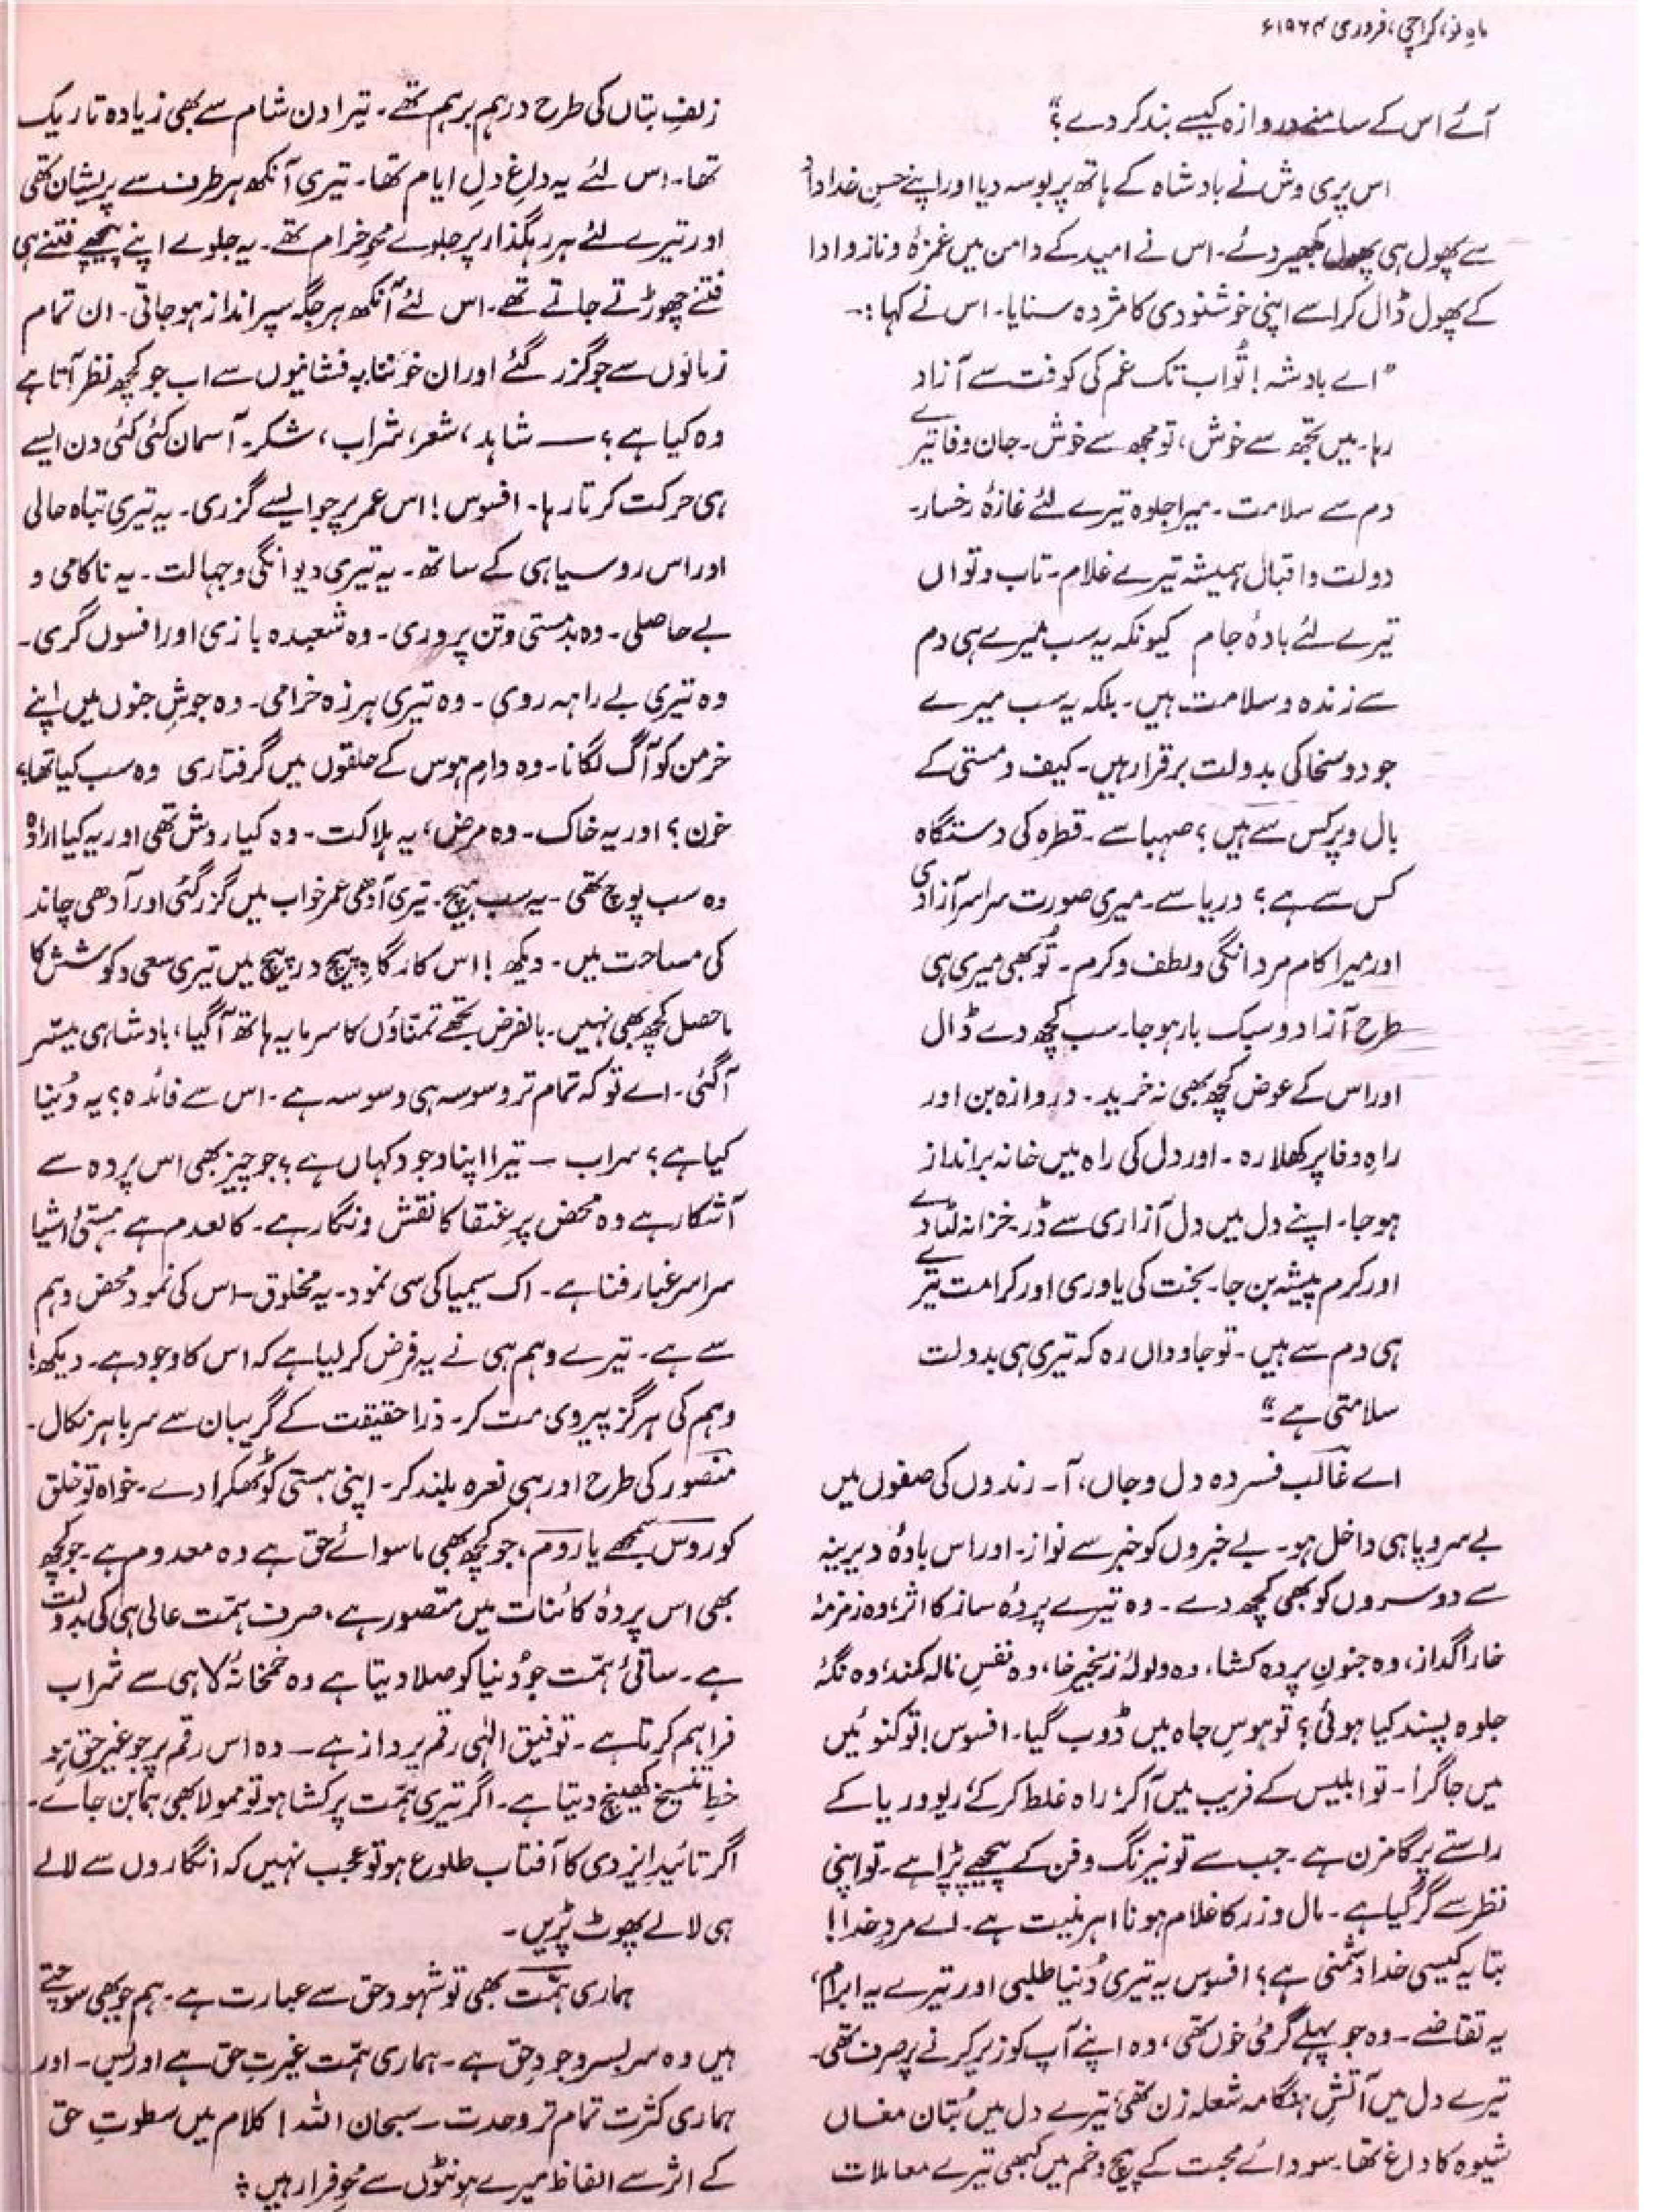 ماہِ نو، کراچی، فروری ۱۹۶۴ء
آئے اس کے سامنے دروازہ کیسے بند کر دے؟“
اس پری وش نے بادشاہ کے ہاتھ پر بوسہ دیا اور اپنے حسنِ خداداد
سے پھول ہی پھول بکھیر دئے۔ اس نے امید کے دامن میں غمزہ و ناز و ادا
کے پھول ڈال کر اسے اپنی خوشنودی کا مژدہ سنایا۔ اس نے کہا :۔
”اے بادشہ! تُو اب تک غم کی کوفت سے آزاد
رہا۔ میں تجھ سے خوش، تو مجھ سے خوش۔ جان وفا تیرے
دم سے سلامت۔ میرا جلوہ تیرے لئے غازۂ رخسار۔
دولت و اقبال ہمیشہ تیرے غلام۔ تاب و تواں
تیرے لئے بادۂ جام کیونکہ یہ سب میرے ہی دم
سے زندہ و سلامت ہیں۔ بلکہ یہ سب میرے
جود و سخا کی بدولت برقرار ہیں۔ کیف و مستی کے
بال و پر کس سے ہیں؟ صہبا سے۔ قطرہ کی دستگاہ
کس سے ہے؟ دریا سے۔ میری صورت سراسر آزادی
اور میرا کام مردانگی و لطف و کرم۔ تُو بھی میری ہی
طرح آزاد و سبک بار ہو جا۔ سب کچھ دے ڈال
اور اس کے عوض کچھ بھی نہ خرید۔ دروازہ بن اور
راہِ وفا پر کھلا رہ۔ اور دل کی راہ میں خانہ برانداز
ہو جا۔ اپنے دل میں دل آزاری سے ڈر۔ خزانہ لٹا دے
اور کرم پیشہ بن جا۔ بخت کی یاوری اور کرامت تیرے
ہی دم سے ہیں۔ تو جاوداں رہ کہ تیری ہی بدولت
سلامتی ہے۔“
اے غالب فسردہ دل و جاں، آ۔ رندوں کی صفوں میں
بے سر و پا ہی داخل ہو۔ بے خبروں کو خبر سے نواز۔ اور اس بادۂ دیرینہ
سے دوسروں کو بھی کچھ دے۔ وہ تیرے پردۂ ساز کا اثر، وہ زمزمۂ
خارا گداز، وہ جنونِ پردہ کشا، وہ ولولۂ زنجیر خا، وہ نفسِ نالہ کمند، وہ نگۂ
جلوہ پسند کیا ہوئی؟ تو ہوسِ جاہ میں ڈوب گیا۔ افسوس! تو کنوئیں
میں جا گرا۔ تو ابلیس کے فریب میں آ کر، راہ غلط کر کے، ریو و ریا کے
راستے پر گامزن ہے۔ جب سے تو نیرنگ و فن کے پیچھے پڑا ہے۔ تو اپنی
نظر سے گر گیا ہے۔ مال و زر کا غلام ہونا اہرمنیت ہے۔ اے مردِ خدا!
بتا یہ کیسی خدا دشمنی ہے؟ افسوس یہ تیری دُنیا طلبی اور تیرے یہ ابرام،
یہ تقاضے۔ وہ جو پہلے گرمیٔ خوں تھی، وہ اپنے آپ کو زیر کرنے پر صرف تھی۔
تیرے دل میں آتشِ ہنگامہ شعلہ زن تھی، تیرے دل میں بُتان مغاں
شیوہ کا داغ تھا۔ سودائے محبت کے پیچ و خم میں کبھی تیرے معاملات
زلفِ بتاں کی طرح درہم برہم تھے۔ تیرا دن شام سے بھی زیادہ تاریک
تھا۔ اس لئے یہ داغِ دلِ ایام تھا۔ تیری آنکھ ہر طرف سے پریشان تھی
اور تیرے لئے ہر رہگذار پر جلوے محوِ خرام تھے۔ یہ جلوے اپنے پیچھے فتنے ہی
فتنے چھوڑتے جاتے تھے۔ اس لئے آنکھ ہر جگہ سپر انداز ہو جاتی۔ ان تمام
زمانوں سے جو گزر گئے اور ان خوننابہ فشانیوں سے اب جو کچھ نظر آتا ہے
وہ کیا ہے؟ — شاہد، شعر، شراب، شکر۔ آسمان کئی کئی دن ایسے
ہی حرکت کرتا رہا۔ افسوس! اس عمر پر جو ایسے گزری۔ یہ تیری تباہ حالی
اور اس روسیاہی کے ساتھ۔ یہ تیری دیوانگی و جہالت۔ یہ ناکامی و
بے حاصلی۔ وہ بدمستی و تن پروری۔ وہ شعبدہ بازی اور افسوں گری۔
وہ تیری بے راہہ روی۔ وہ تیری ہرزہ خرامی۔ وہ جوشِ جنوں میں اپنے
خرمن کو آگ لگانا۔ وہ دامِ ہوس کے حلقوں میں گرفتاری وہ سب کیا تھا؟
خون؟ اور یہ خاک۔ وہ مرض، یہ ہلاکت۔ وہ کیا روش تھی اور یہ کیا ارادہ
وہ سب پوچ تھی۔ یہ سب ہیچ۔ تیری آدھی عمر خواب میں گزر گئی اور آدھی چاند
کی مساحت میں۔ دیکھ! اس کارگاہِ پیچ در پیچ میں تیری سعی و کوشش کا
ماحصل کچھ بھی نہیں۔ بالفرض تجھے تمنّاؤں کا سرمایہ ہاتھ آ گیا، بادشاہی میسّر
آ گئی۔ اے تو کہ تمام تر وسوسہ ہی وسوسہ ہے۔ اس سے فائدہ؟ یہ دُنیا
کیا ہے؟ سراب — تیرا اپنا وجود کہاں ہے؟ جو چیز بھی اس پردہ سے
آشکار ہے وہ محض پرِ عنقا کا نقش و نگار ہے۔ کالعدم ہے ہستیٔ اشیا
سراسر غبار فنا ہے۔ اک سیمیا کی سی نمود۔ یہ مخلوق۔ اس کی نمود محض وہم
سے ہے۔ تیرے وہم ہی نے یہ فرض کر لیا ہے کہ اس کا وجود ہے۔ دیکھ!
وہم کی ہرگز پیروی مت کر۔ ذرا حقیقت کے گریبان سے سر باہر نکال۔
منصور کی طرح اور ہی نعرہ بلند کر۔ اپنی ہستی کو ٹھکرا دے۔ خواہ تو خلق
کو روس سمجھے یا روم، جو کچھ بھی ماسوائے حق ہے وہ معدوم ہے۔ جو کچھ
بھی اس پردۂ کائنات میں متصور ہے، صرف ہمّت عالی ہی کی بدولت
ہے۔ ساقیٔ ہمّت جو دُنیا کو صلا دیتا ہے وہ خمخانۂ لا ہی سے شراب
فراہم کرتا ہے۔ توفیق الٰہی رقم پرداز ہے — وہ اس رقم پر جو غیر حق ہو
خطِ تنسیخ کھینچ دیتا ہے۔ اگر تیری ہمّت پر کشا ہو تو ممولا بھی ہما بن جائے۔
اگر تائیدِ ایزدی کا آفتاب طلوع ہو تو عجب نہیں کہ انگاروں سے لالے
ہی لالے پھوٹ پڑیں۔
ہماری ہمّت بھی تو شہودِ حق سے عبارت ہے۔ ہم جو بھی سوچتے
ہیں وہ سر بسر وجودِ حق ہے۔ ہماری ہمّت غیرتِ حق ہے اور بس۔ اور
ہماری کثرت تمام تر وحدت۔ سبحان اللہ! کلام میں سطوتِ حق
کے اثر سے الفاظ میرے ہونٹوں سے محوِ فرار ہیں؞